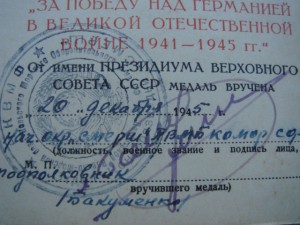 „ЗА ПОБЕДУ НАД ГЕРМАНИЕЙ
В ВЕЛИКОЙ ОТЕЧЕСТВЕННОЙ
ВОЙНЕ 1941—1945 гг."
ОТ ИМЕНИ ПРЕЗИДИУМА ВЕРХОВНОГО
СОВЕТА СССР МЕДАЛЬ ВРУЧЕНА
„20" декабря 1945 г.
нач. окр.
(должность, военное звание и подпись лица,
М. П.
подполковник
вручившего медаль)